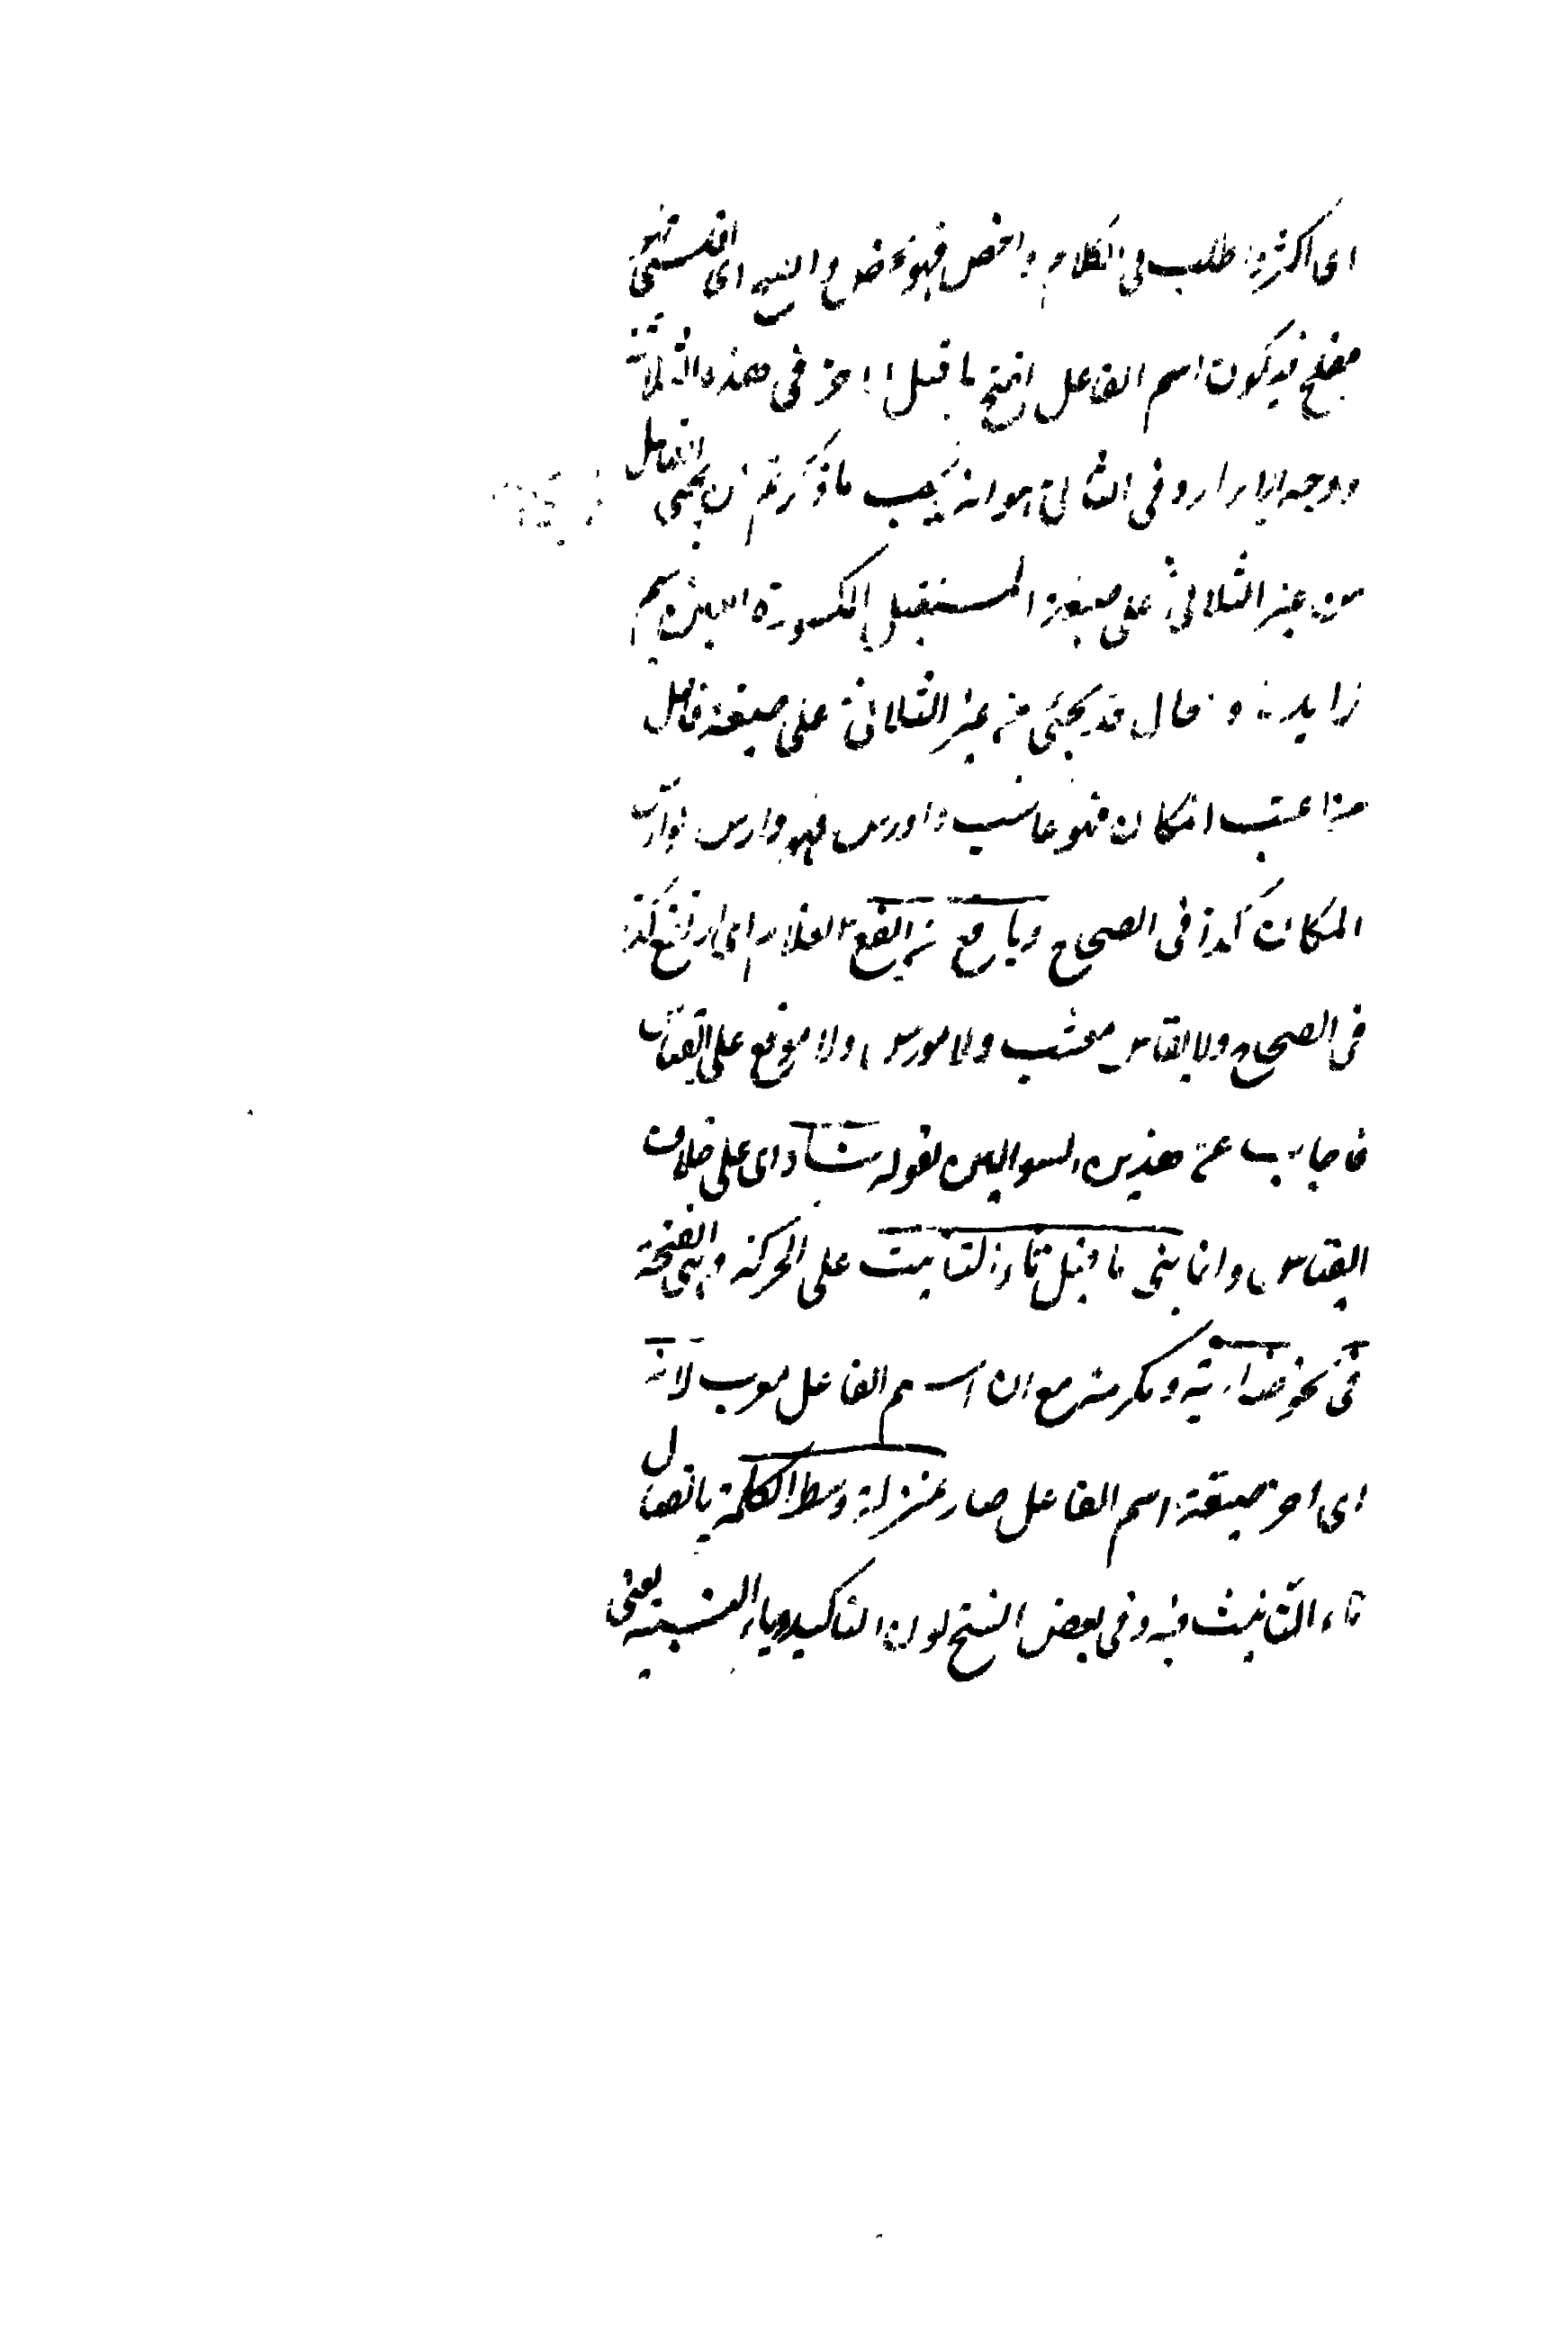 اى اكثر واطلب فى الكلام واحصن فهو محصن والفج اى افلس فهو
مفلج فيكون اسم الفاعل انفتح ما قبل اخر فى هذه الثلاثة
ووجه الايراد وفى الثانى هوانه يجب ما ذكرتم ان يجئ الفاعل
من غير الثلاثى على صيغة المستقبل المكسورة العين بميم
زايدة و حال قد يجئى من غير الثلاثى على صيغة فاعل
من اعشب المكان فهو عاشب و اورس فهو وارس
المكان كذا فى الصحاح ويافع من ايفع الغلام اى ارتفع كذا
فى الصحاح ولا يقاس معشب ولا مورس ولا موفع على القياس
فاجاب عن هذين السوالين بقوله شاذ اى على خلاف
القياس وانما بنى ما قبل تاء التانيث على الحركة وهى الفتحة
فى نحو ضاربة ومكرمة مع ان اسم الفاعل معرب لانه
اى اخر صيغة اسم الفاعل صار بمنزلة وسط الكلمة باتصال
تاء التانيث فيه وفى بعض النسخ نون التاكيد وياء النسبة يعنى